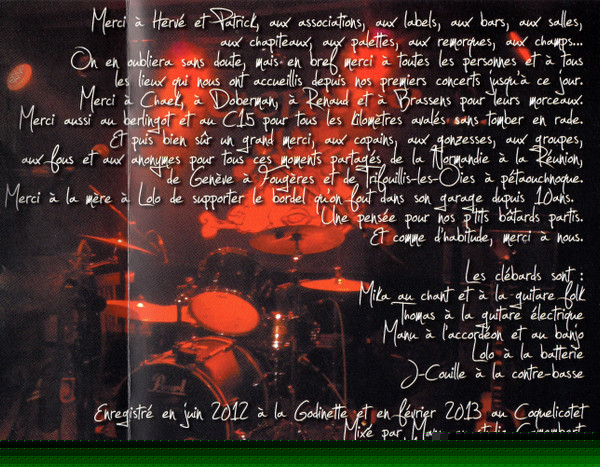 Merci à Hervé et Patrick, aux associations, aux labels, aux bars, aux salles,
aux chapiteaux, aux palettes, aux remorques, aux champs...
On en oubliera sans doute, mais en bref merci à toutes les personnes et à tous
les lieux qui nous ont accueillis depuis nos premiers concerts jusqu'à ce jour.
Merci à Chaek, à Doberman, à Renaud et à Brassens pour leurs morceaux.
Merci aussi au berlingot et au C15 pour tous les kilomètres avalés sans tomber en rade.
Et puis bien sûr un grand merci, aux copains, aux gonzesses, aux groupes,
aux fous et aux anonymes pour tous ces moments partagés de la Normandie à la Réunion,
de Genève à Fougères et de Trifouillis-les-Oies à pétaouchnoque.
Merci à la mère à Lolo de supporter le bordel qu'on fout dans son garage dupuis 10ans.
Une pensée pour nos p'tits bâtards partis.
Et comme d'habitude, merci à nous.
Les clébards sont :
Mika au chant et à la guitare folk
Thomas à la guitare électrique
Manu à l'accordéon et au banjo
Lolo à la batterie
J-Couille à la contre-basse
Enregistré en juin 2012 à la Godinette et en février 2013 au Coquelicotet
Mixé par